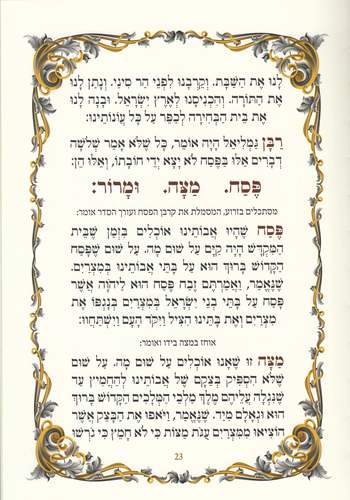 לָנוּ אֶת הַשַּׁבָּת. וְקֵרְבָנוּ לִפְנֵי הַר סִינַי. וְנָתַן לָנוּ
אֶת הַתּוֹרָה. וְהִכְנִיסָנוּ לְאֶרֶץ יִשְׂרָאֵל. וּבָנָה לָנוּ
אֶת בֵּית הַבְּחִירָה לְכַפֵּר עַל כָּל עֲוֹנוֹתֵינוּ:
רַבָּן גַּמְלִיאֵל הָיָה אוֹמֵר, כָּל שֶׁלֹּא אָמַר שְׁלֹשָׁה
דְבָרִים אֵלּוּ בַּפֶּסַח לֹא יָצָא יְדֵי חוֹבָתוֹ, וְאֵלּוּ הֵן:
פֶּסַח. מַצָּה. וּמָרוֹר:
מסתכלים בזרוע, המסמלת את קרבן הפסח ועורך הסדר אומר:
פֶּסַח שֶׁהָיוּ אֲבוֹתֵינוּ אוֹכְלִים בִּזְמַן שֶׁבֵּית
הַמִּקְדָּשׁ הָיָה קַיָּם עַל שׁוּם מָה. עַל שׁוּם שֶׁפָּסַח
הַקָּדוֹשׁ בָּרוּךְ הוּא עַל בָּתֵּי אֲבוֹתֵינוּ בְּמִצְרַיִם.
שֶׁנֶּאֱמַר, וַאֲמַרְתֶּם זֶבַח פֶּסַח הוּא לַיהֹוָה אֲשֶׁר
פָּסַח עַל בָּתֵּי בְנֵי יִשְׂרָאֵל בְּמִצְרַיִם בְּנָגְפּוֹ אֶת
מִצְרַיִם וְאֶת בָּתֵּינוּ הִצִּיל וַיִּקֹּד הָעָם וַיִּשְׁתַּחֲווּ:
אוחז במצה בידו ואומר:
מַצָּה זוֹ שֶׁאָנוּ אוֹכְלִים עַל שׁוּם מָה. עַל שׁוּם
שֶׁלֹּא הִסְפִּיק בְּצֵקָם שֶׁל אֲבוֹתֵינוּ לְהַחֲמִיץ עַד
שֶׁנִּגְלָה עֲלֵיהֶם מֶלֶךְ מַלְכֵי הַמְּלָכִים הַקָּדוֹשׁ בָּרוּךְ
הוּא וּגְאָלָם מִיָּד. שֶׁנֶּאֱמַר, וַיֹּאפוּ אֶת הַבָּצֵק אֲשֶׁר
הוֹצִיאוּ מִמִּצְרַיִם עֻגֹת מַצּוֹת כִּי לֹא חָמֵץ כִּי גֹרְשׁוּ
23